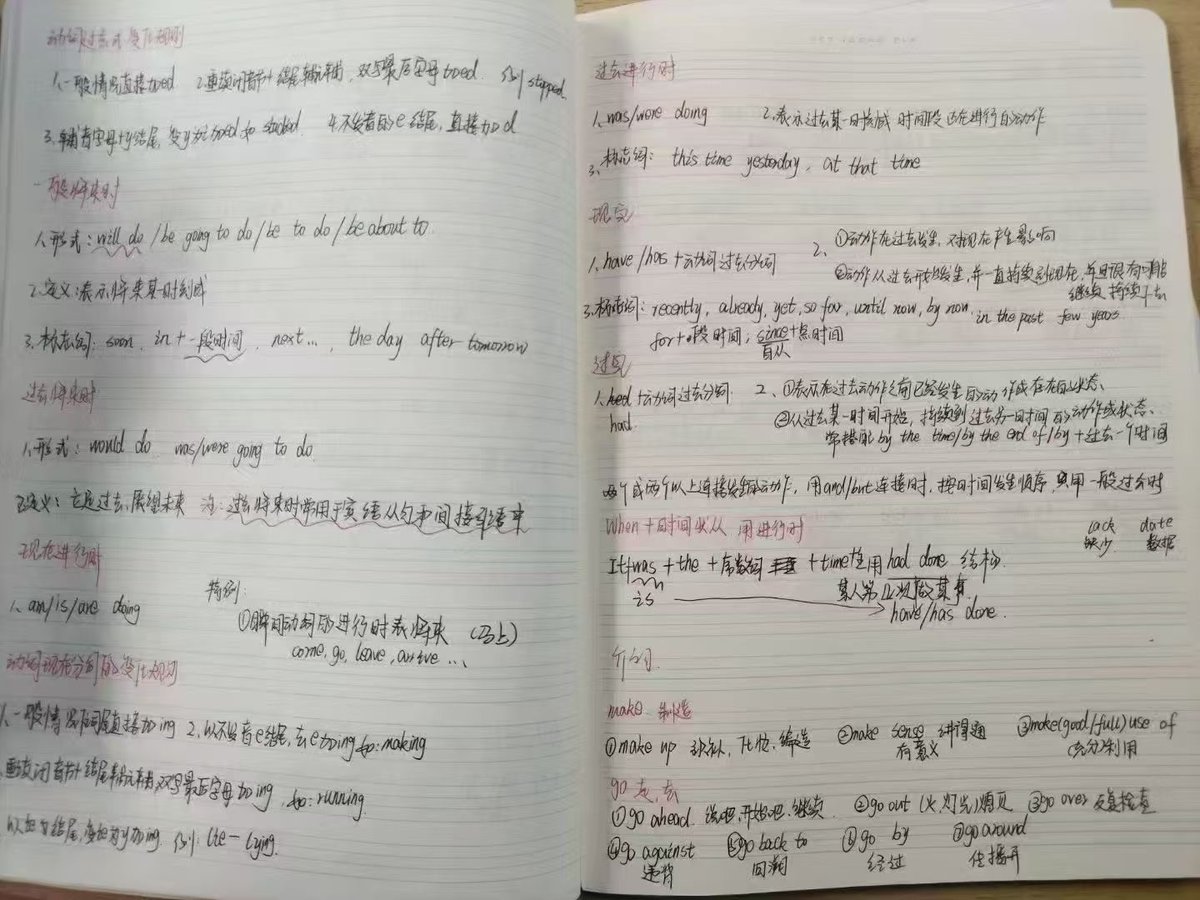 动词过去式变化规则
1.一般情况直接加ed 2.重读闭音节结尾辅元辅,双写最后字母加ed. 例 stopped.
3.辅音字母+y结尾,变y为i加ed 如 studied. 4.不发音的e结尾,直接加d
一般将来时
1.形式:will do /be going to do/be to do/be about to.
2.定义:表示将来某一时刻或
3.标志词:soon, in+一段时间, next..., the day after tomorrow
过去将来时
1.形式:would do. was/were going to do.
2.定义:立足过去,展望未来 注:过去将来时常用于宾语从句和间接引语中
现在进行时
1. am/is/are doing
特例:
①瞬间动词的进行时表将来 (马上)
come, go, leave, arrive ...
动词现在分词的变化规则
1.一般情况在词尾直接加ing 2.以不发音e结尾,去e加ing 如:making
重读闭音节结尾辅元辅,双写最后字母加ing, 如:running.
以ie为结尾,变ie为y加ing. 例:lie—lying.
过去进行时
1. was/were doing 2.表示过去某一时刻或时间段正在进行的动作
3.标志词: this time yesterday, at that time
现完
1. have/has+动词过去分词 2.①动作在过去发生,对现在产生影响
②动作从过去开始发生,并一直持续到现在,并且很有可能
继续持续下去
3.标志词:recently, already, yet, so far, until now, by now, in the past few years.
for+段时间, since+点时间
自从
过完
1. had+动词过去分词 2.①表示在过去动作之前已经发生的动作或存在的状态.
②从过去某一时间开始,持续到过去另一时间的动作或状态.
常搭配 by the time/by the end of/by+过去一个时间
两个或两个以上连接发生的动作,用and/but连接时,按时间发生顺序,只用一般过去时
When+时间状从 用进行时
lack date
缺少 数据
It+was+the+序数词+time 应用 had done 结构.
某人第几次做某事.
is
have/has done.
介词
make 制造
①make up 弥补,化妆,编造 ②make sense 讲得通 ③make(good/full)use of
有意义 (充分)利用
go 走,去
①go ahead. 说吧,开始吧,继续 ②go out (火,灯光)熄灭 ③go over 反复检查
④go against ⑤go back to ⑥go by ⑦go around
违背 回溯 经过 传播开